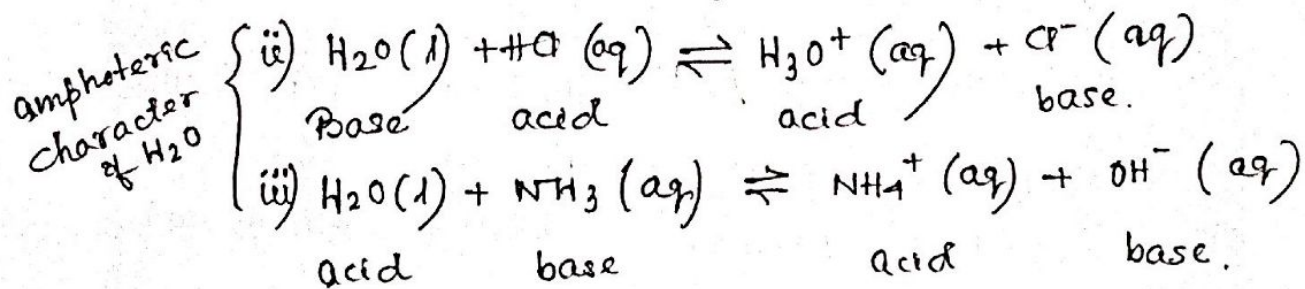 amphoteric
character
of H2O
ii) H2O(l) + HCl (aq) ⇌ H3O+ (aq) + Cl- (aq)
Base acid acid base.
iii) H2O(l) + NH3 (aq) ⇌ NH4+ (aq) + OH- (aq)
acid base acid base.